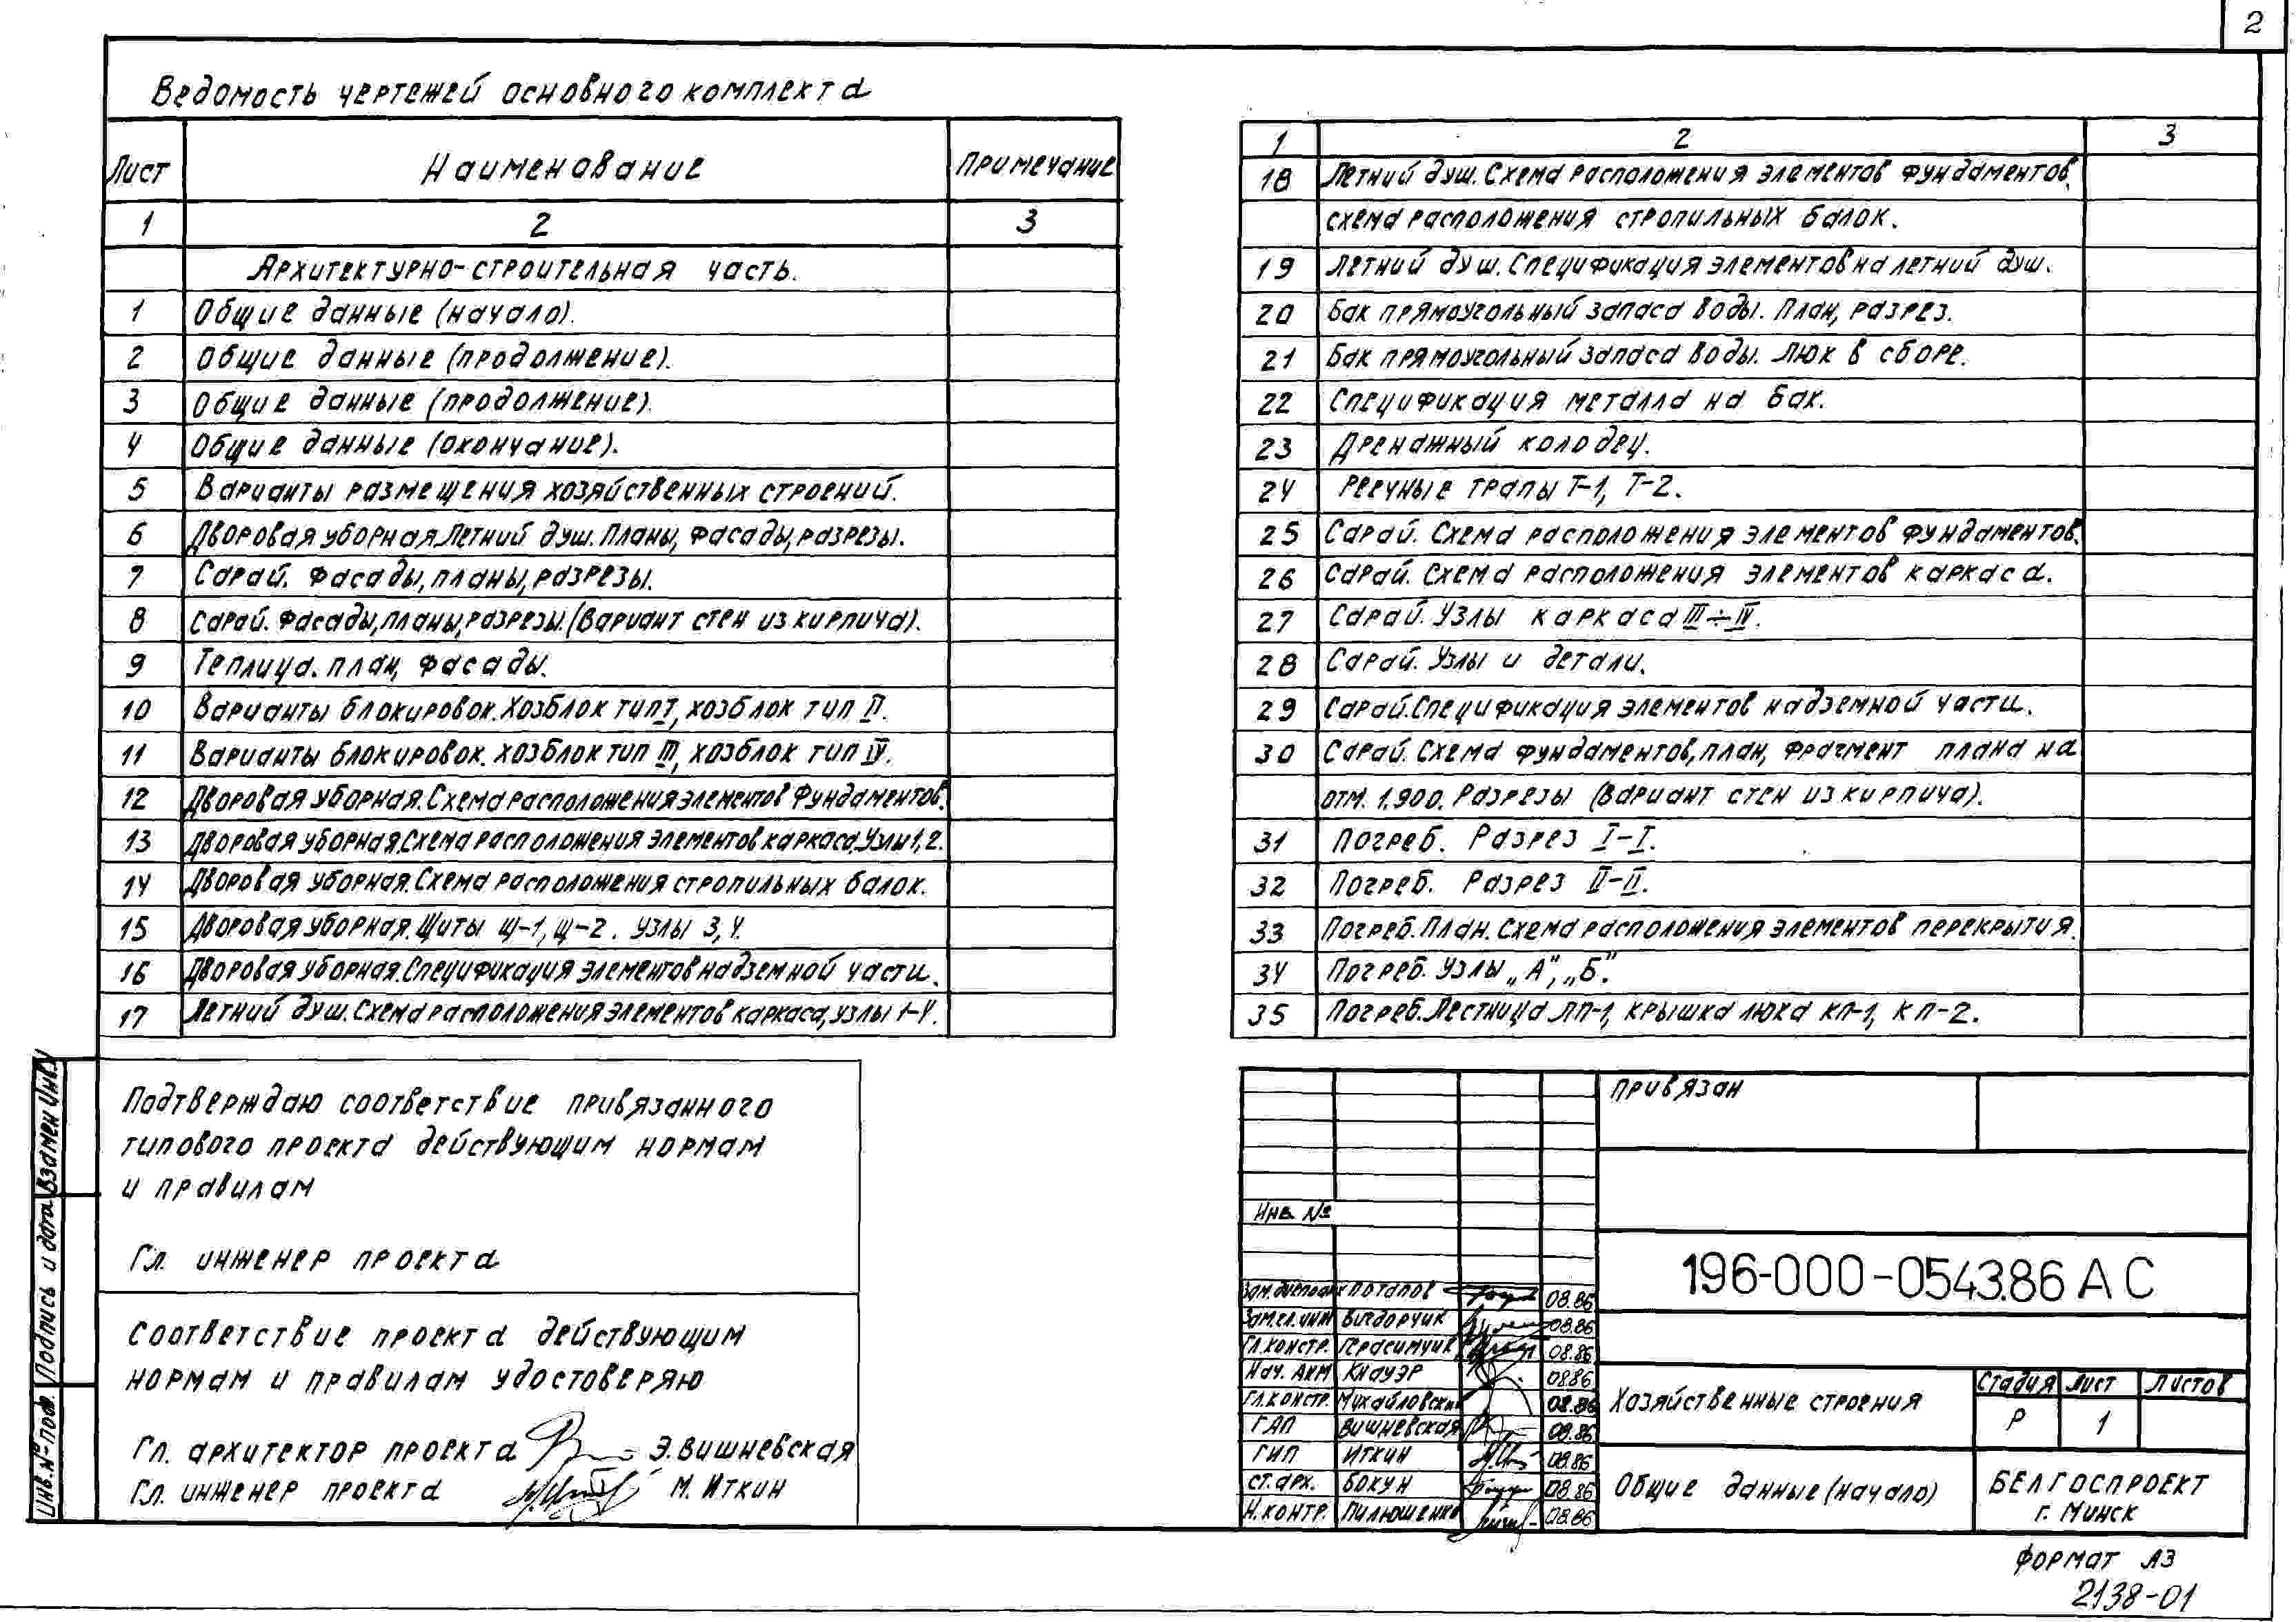 2
Ведомость чертежей основного комплекта
Лист Наименование Примечание
1 2 3
Архитектурно-строительная часть.
1 Общие данные (начало).
2 Общие данные (продолжение).
3 Общие данные (продолжение).
4 Общие данные (окончание).
5 Варианты размещения хозяйственных строений.
6 Дворовая уборная. Летний душ. Планы, фасады, разрезы.
7 Сарай. Фасады, планы, разрезы.
8 Сарай. Фасады, планы, разрезы. (Вариант стен из кирпича).
9 Теплица. План, фасады.
10 Варианты блокировок. Хозблок тип I, хозблок тип II.
11 Варианты блокировок. Хозблок тип III, хозблок тип IV.
12 Дворовая уборная. Схема расположения элементов фундаментов.
13 Дворовая уборная. Схема расположения элементов каркаса. Узлы 1, 2.
14 Дворовая уборная. Схема расположения стропильных балок.
15 Дворовая уборная. Щиты Щ-1, Щ-2. Узлы 3, 4.
16 Дворовая уборная. Спецификация элементов надземной части.
17 Летний душ. Схема расположения элементов каркаса, узлы 1-4.
1 2 3
18 Летний душ. Схема расположения элементов фундаментов,
схема расположения стропильных балок.
19 Летний душ. Спецификация элементов на летний душ.
20 Бак прямоугольный запаса воды. План, разрез.
21 Бак прямоугольный запаса воды. Люк в сборе.
22 Спецификация металла на бак.
23 Дренажный колодец.
24 Реечные трапы Т-1, Т-2.
25 Сарай. Схема расположения элементов фундаментов.
26 Сарай. Схема расположения элементов каркаса.
27 Сарай. Узлы каркаса III÷IV.
28 Сарай. Узлы и детали.
29 Сарай. Спецификация элементов надземной части.
30 Сарай. Схема фундаментов, план, фрагмент плана на
отм. 1.900. Разрезы (Вариант стен из кирпича).
31 Погреб. Разрез I-I.
32 Погреб. Разрез II-II.
33 Погреб. План. Схема расположения элементов перекрытия.
34 Погреб. Узлы „А”, „Б”.
35 Погреб. Лестница ЛП-1, крышка люка КЛ-1, КЛ-2.
Подтверждаю соответствие привязанного
типового проекта действующим нормам
и правилам
Гл. инженер проекта
Соответствие проекта действующим
нормам и правилам удостоверяю
Гл. архитектор проекта Э. Вишневская
Гл. инженер проекта М. Иткин
Инв. № подл. Подпись и дата Взамен Инв.
Привязан
Инв. №
196-000-054.3.86 АС
Потапов 08.86
Зам.гл.инж Вигдорчик 08.86
Гл.констр. Герасимчик 08.86
Нач. АКМ Кнауэр 08.86
Гл.констр. Михайловский 08.86
ГАП Вишневская 08.86
ГИП Иткин 08.86
Ст.арх. Бокун 08.86
Н.контр. Пилюшенко 08.86
Хозяйственные строения
Стадия Лист Листов
Р 1
Общие данные (начало)
БЕЛГОСПРОЕКТ
г. Минск
Формат А3
2138-01